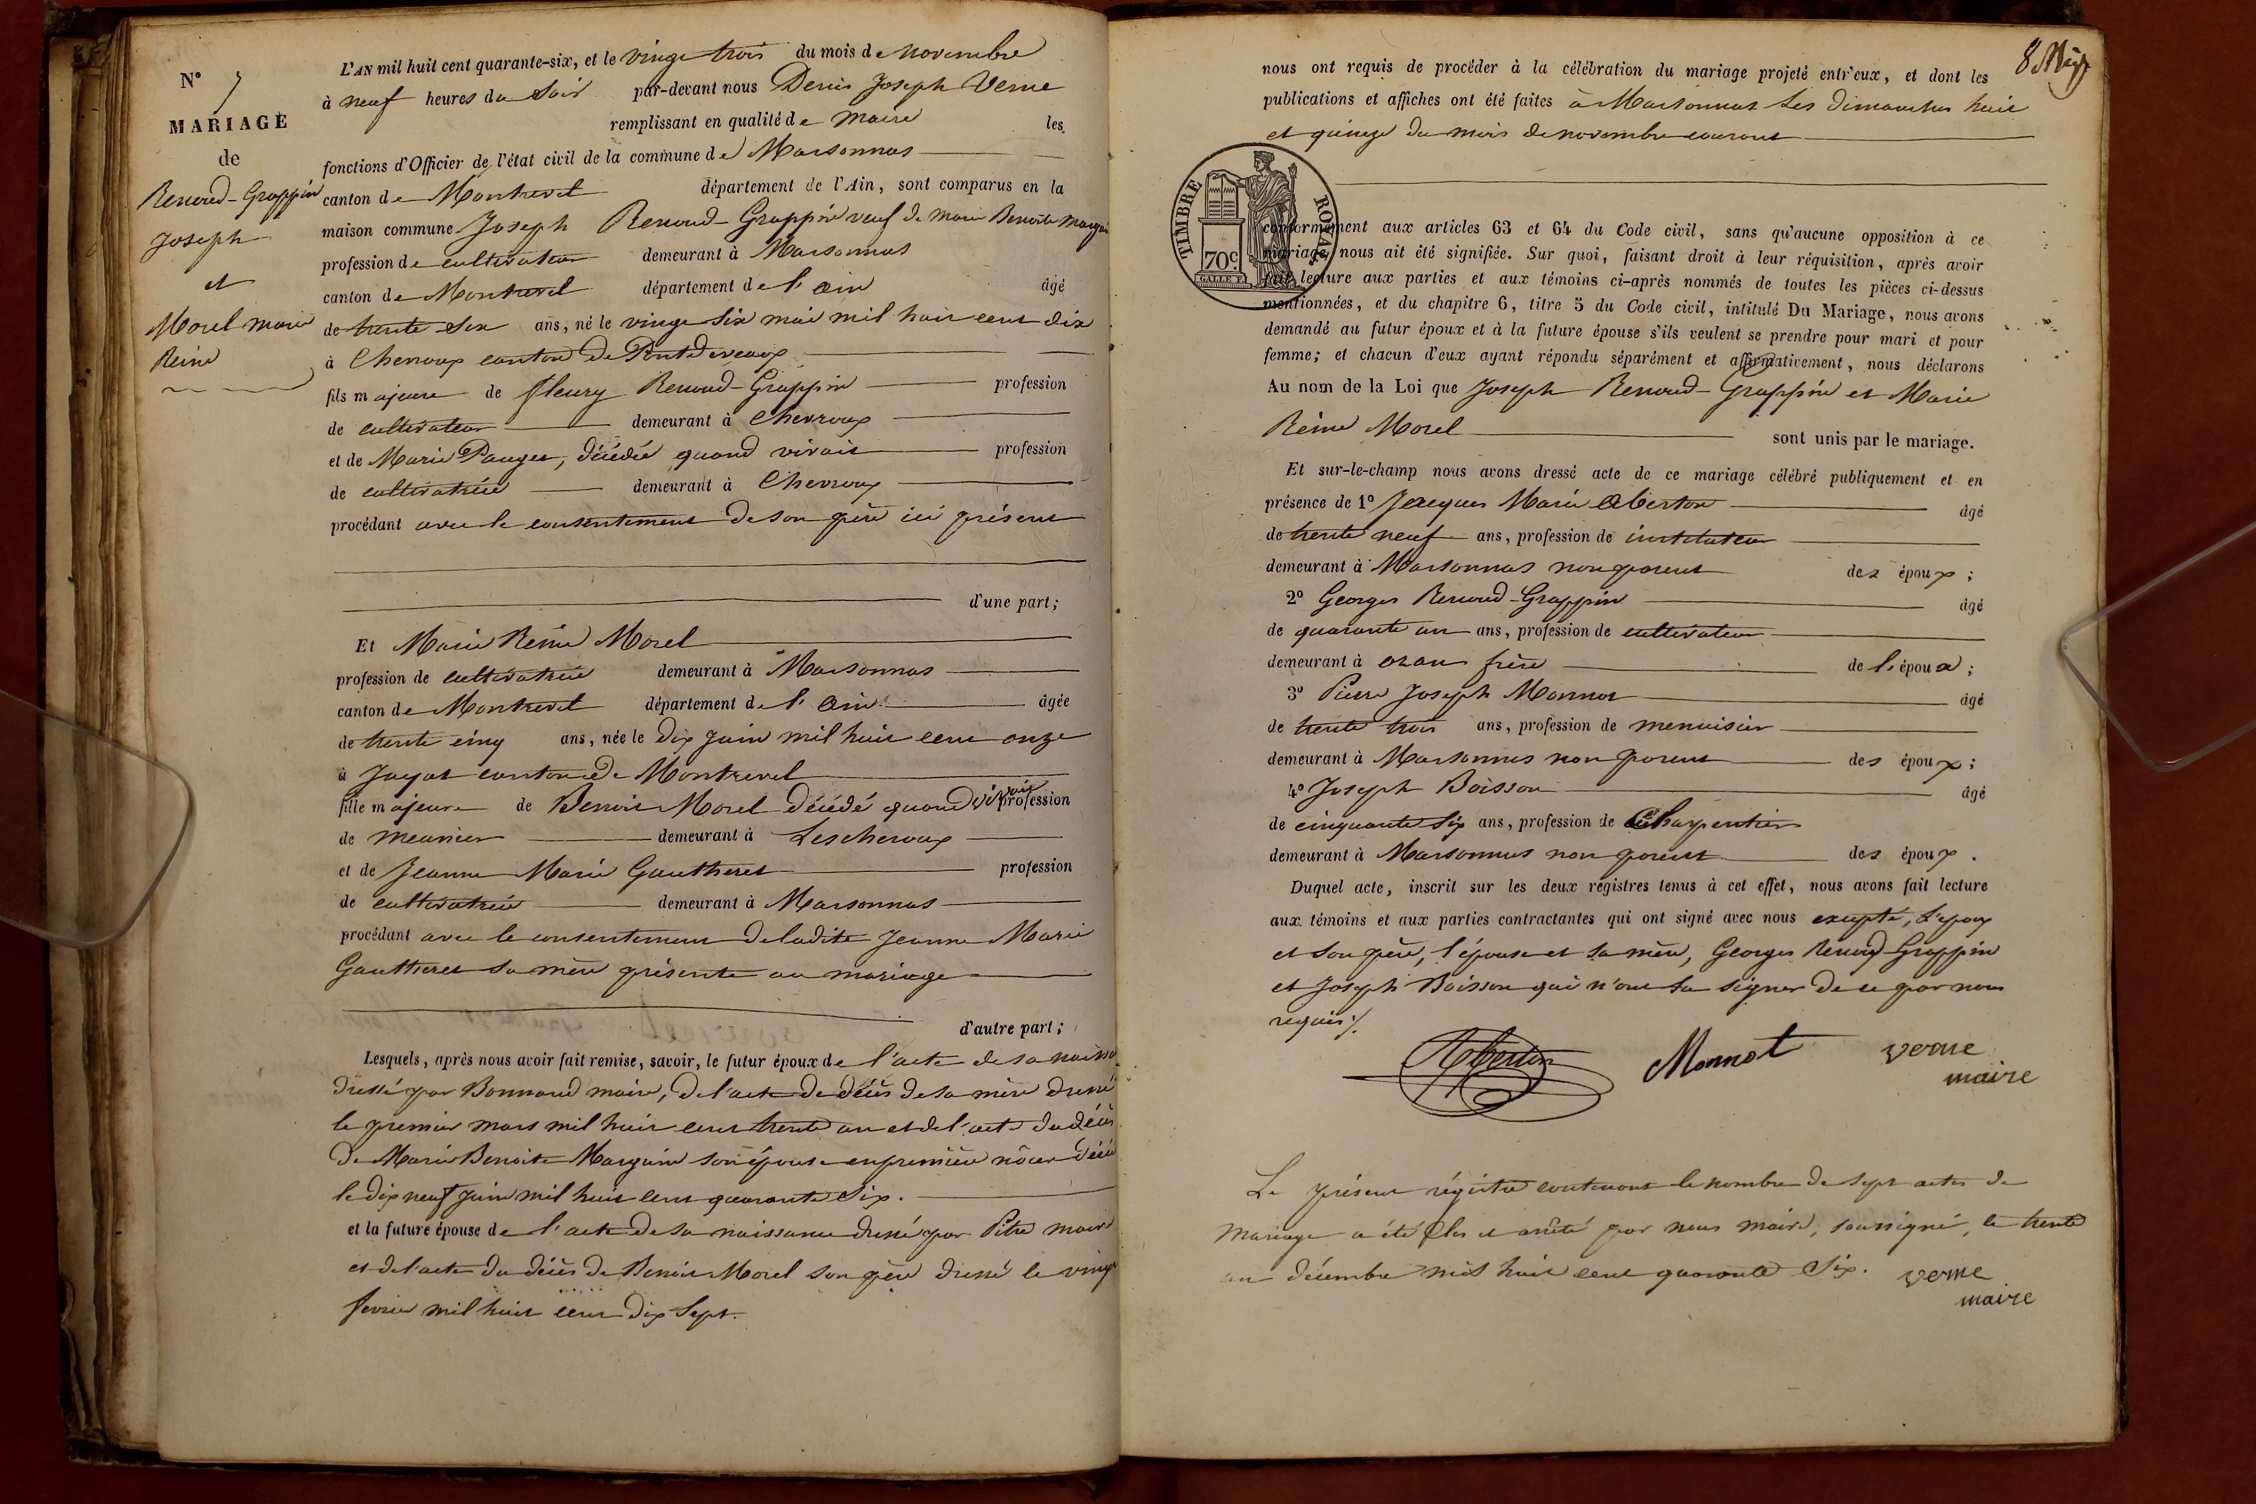 N° 7
MARIAGE
de
Renoud-Grappin
Joseph
et
Morel marie
Reine
L'AN mil huit cent quarante-six, et le vingt trois du mois de novembre
à neuf heures du soir par-devant nous Denis Joseph Verne
remplissant en qualité de maire les
fonctions d'Officier de l'état civil de la commune de Marsonnas
canton de Montrevel département de l'Ain, sont comparus en la
maison commune Joseph Renoud-Grappin veuf de marie Benoite Marguin
profession de cultivateur demeurant à Marsonnas
canton de Montrevel département de l'ain âgé
de trente six ans, né le vingt six mai mil huit cent dix
à Chevroux canton de Pontdevaux
fils majeur de fleury Renoud-Grappin profession
de cultivateur demeurant à Chevroux
et de Marie Pauget, décédée quand vivait profession
de cultivatrice demeurant à Chevroux
procédant avec le consentement de son père ici présent
d'une part;
Et Marie Reine Morel
profession de cultivatrice demeurant à Marsonnas
canton de Montrevel département de l'ain âgée
de trente cinq ans, née le dix juin mil huit cent onze
à Jayat canton de Montrevel
fille majeure de Benoit Morel décédé quand vivait profession
de meunier demeurant à Lescheroux
et de Jeanne Marie Gautheret profession
de cultivatrice demeurant à Marsonnas
procédant avec le consentement de ladite Jeanne Marie
Gautheret sa mère présente au mariage
d'autre part;
Lesquels, après nous avoir fait remise, savoir, le futur époux de l'acte de sa naissance
dressé par Bonnaud maire, de l'acte de décès de sa mère dressé
le premier mars mil huit cent trente un et de l'acte du décès
de Marie Benoite Marguin son épouse en première nôces décédé
le dix neuf juin mil huit cent quarante six.
et la future épouse de l'acte de sa naissance dressé par Pitre maire
et de l'acte du décès de Benoit Morel son père dressé le vingt
fevrier mil huit cent dix sept.
nous ont requis de procéder à la célébration du mariage projeté entr'eux, et dont les
publications et affiches ont été faites à Marsonnas les dimanches huit
et quinze du mois de novembre courant
TIMBRE ROYAL
70c
conformément aux articles 63 et 64 du Code civil, sans qu'aucune opposition à ce
mariage nous ait été signifiée. Sur quoi, faisant droit à leur réquisition, après avoir
fait lecture aux parties et aux témoins ci-après nommés de toutes les pièces ci-dessus
mentionnées, et du chapitre 6, titre 5 du Code civil, intitulé Du Mariage, nous avons
demandé au futur époux et à la future épouse s'ils veulent se prendre pour mari et pour
femme; et chacun d'eux ayant répondu séparément et affirmativement, nous déclarons
Au nom de la Loi que Joseph Renoud-Grappin et Marie
Reine Morel sont unis par le mariage.
Et sur-le-champ nous avons dressé acte de ce mariage célébré publiquement et en
présence de 1° Jacques Marie Oberton âgé
de trente neuf ans, profession de instituteur
demeurant à Marsonnas non parent des époux;
2° Georges Renoud-Grappin âgé
de quarante un ans, profession de cultivateur
demeurant à ozan frère de l'époux;
3° Pierre Joseph Monnot âgé
de trente trois ans, profession de menuisier
demeurant à Marsonnas non parent des époux;
4° Joseph Boisson âgé
de cinquante six ans, profession de Charpentier
demeurant à Marsonnas non parent des époux.
Duquel acte, inscrit sur les deux registres tenus à cet effet, nous avons fait lecture
aux témoins et aux parties contractantes qui ont signé avec nous excepté, l'epoux
et son père, l'épouse et sa mère, Georges Renoud-Grappin
et Joseph Boisson qui n'ont su signer de ce par nous
requis./.
Monnot verne
maire
Le présent régistre contenant le nombre de sept actes de
Mariage a été Clos et arrêté par nous maire, soussigné, le trente
un décembre mil huit cent quarante Six. verne
maire